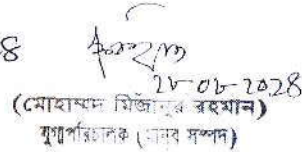 ৪
২৮-০৮-২০২৪
(মোহাম্মদ মিজানুর রহমান)
যুগ্মপরিচালক (মানব সম্পদ)